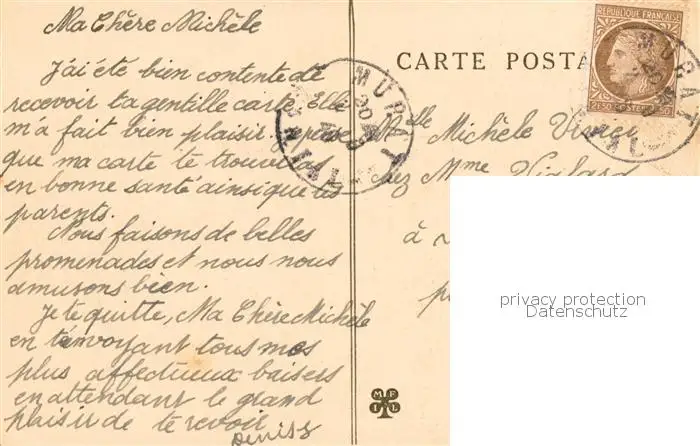 Ma Chère Michèle
J'ai été bien contente de
recevoir ta gentille carte. Elle
m'a fait bien plaisir. Je pense
que ma carte te trouvera
en bonne santé ainsi que tes
parents.
Nous faisons de belles
promenades et nous nous
amusons bien.
Je te quitte, Ma Chère Michèle
en t'envoyant tous mes
plus affectueux baisers
en attendant le grand
plaisir de te revoir
Denise
CARTE POSTA
REPUBLIQUE FRANÇAISE
2F50 POSTES 2F50
MURAT
MURAT
CANTAL
Melle Michèle
chez Mme
à
privacy protection
Datenschutz